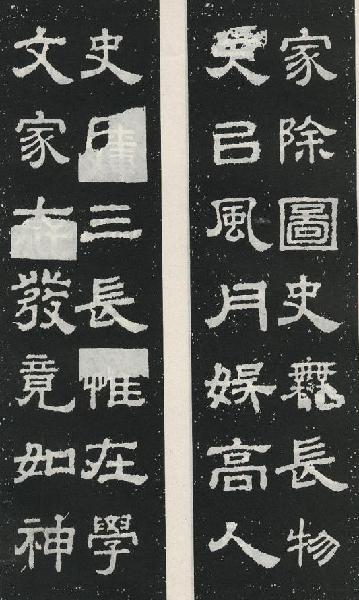 家除圖史無長物
天㠯風月娛高人
史三長惟在學
文家發竟如神